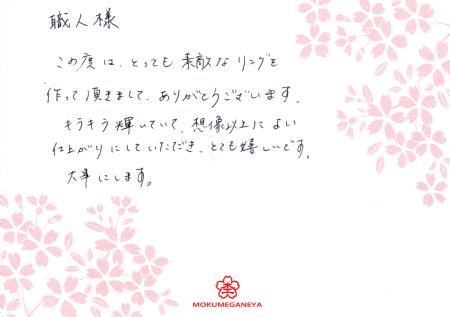 職人様
この度は、とっても素敵なリングを
作って頂きまして、ありがとうございます。
キラキラ輝いていて、想像以上によい
仕上がりにしていただき、とても嬉しいです。
大事にします。
MOKUMEGANEYA